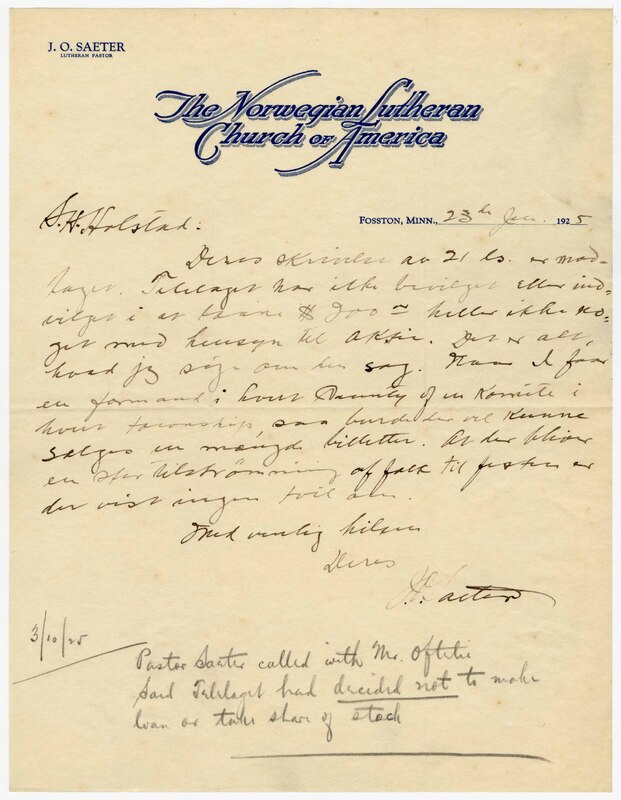 J. O. SAETER
LUTHERAN PASTOR
The Norwegian Lutheran
Church of America
FOSSTON, MINN., 23de Jan. 1925
S. H. Holstad:
Deres skrivelse av 21 ds. er mod-
taget. Telelaget har ikke bevilget eller ind-
vilget i at laane $ 900 heller ikke no-
get med hensyn til aksie. Det er alt,
hvad jeg om den sag. Naar I faar
en formand i hvert County og en Komite i
hvert township saa burde der vel kunne
salges en mængde billetter. At der bliver
en stor tilströmning af folk til festen er
der vist ingen tvil om.
Med venlig hilsen
Deres
J. O. Saeter
3/10/25
Pastor Saeter called with Mr. Oftelie
Said Telelaget had decided not to make
loan or take share of stock